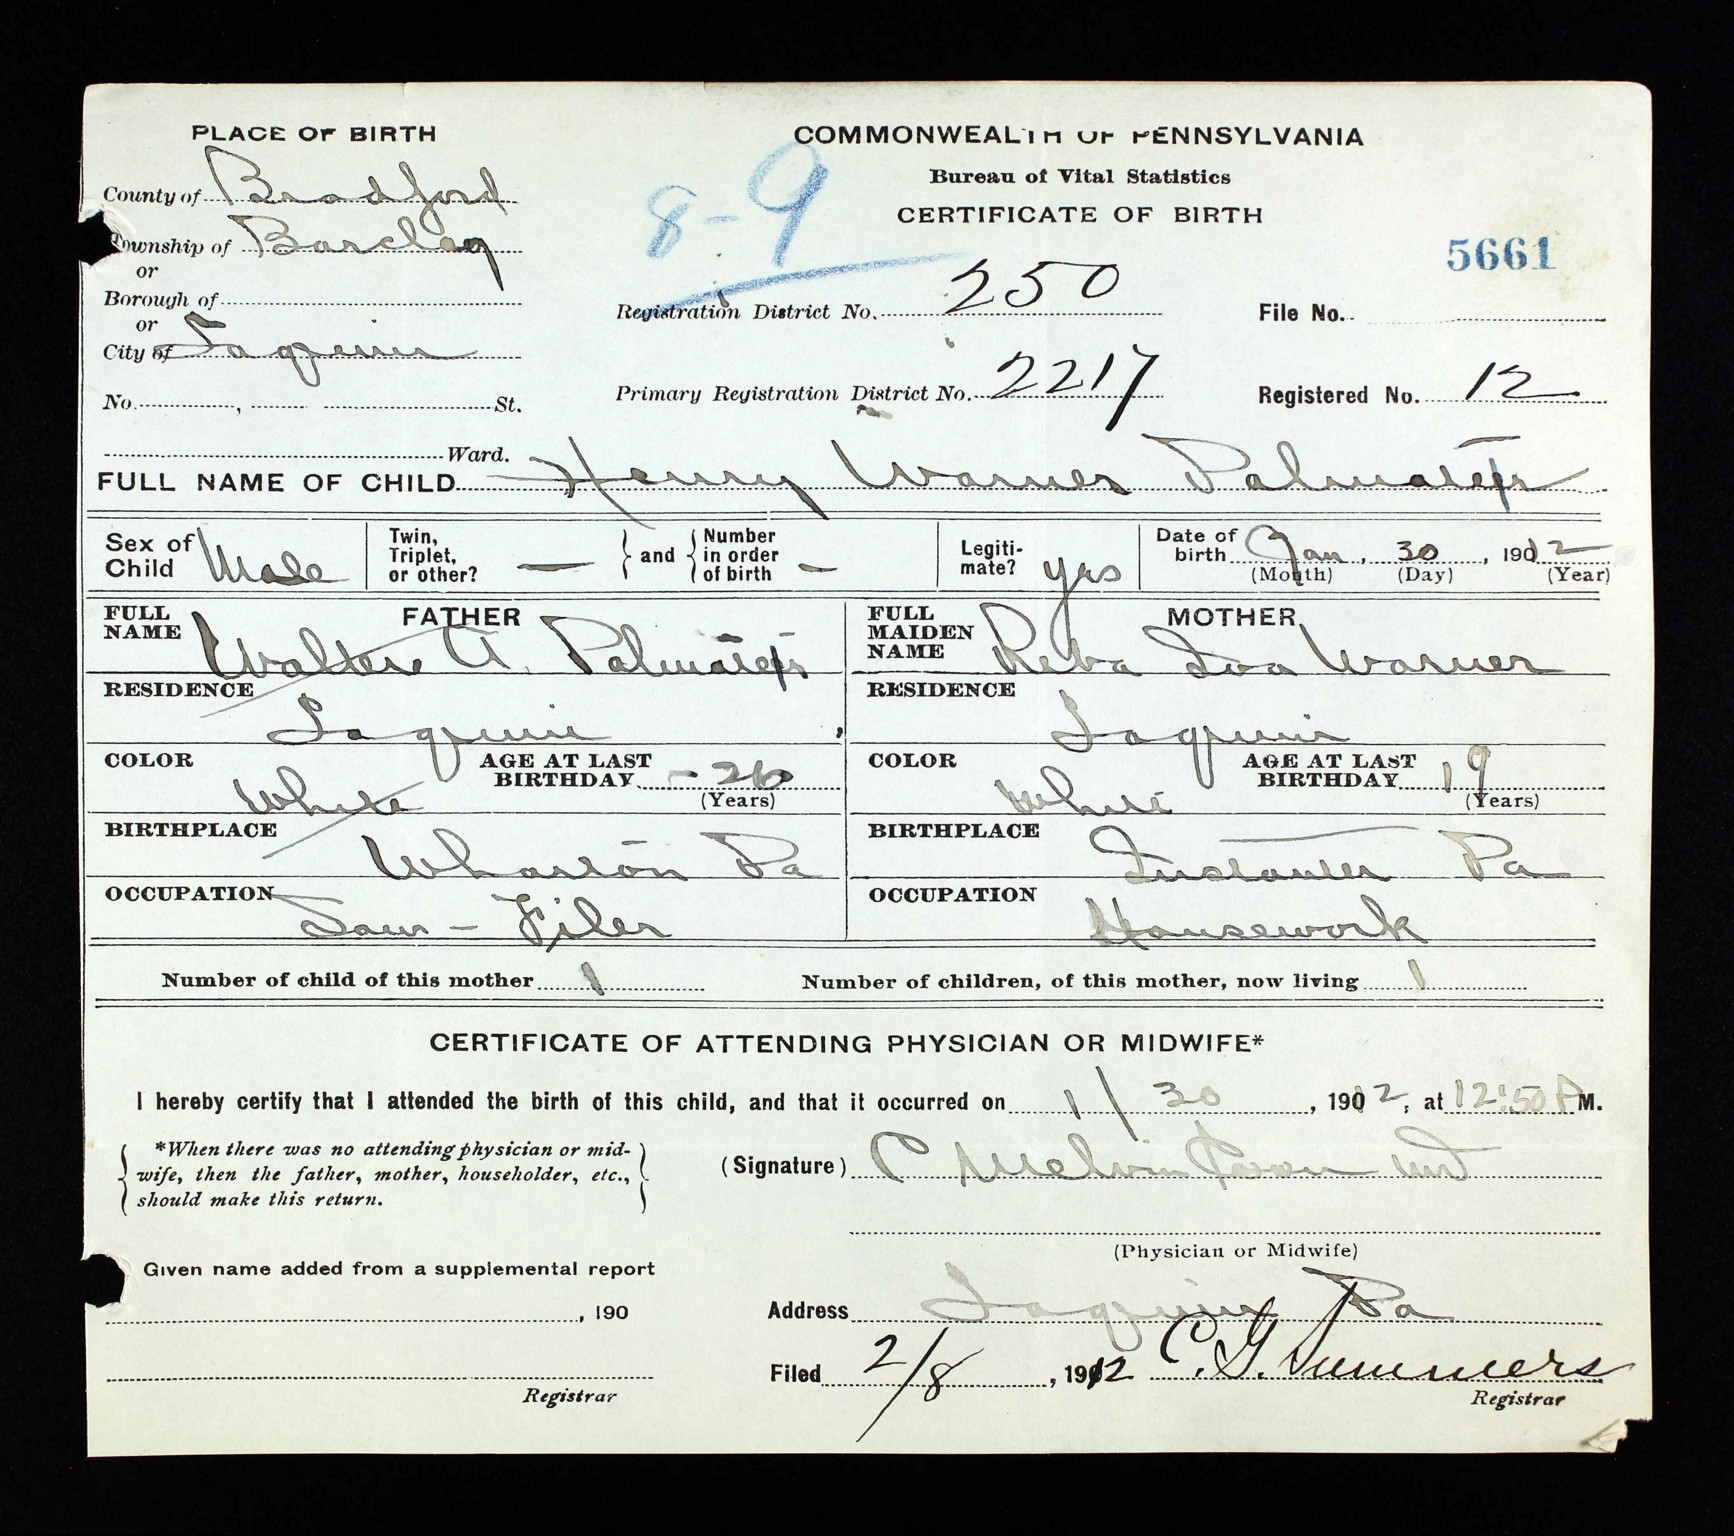 PLACE OF BIRTH
County of Bradford
Township of Barclay
or
Borough of
or
City of Laquin
No. , St.
Ward.
8-9
COMMONWEALTH OF PENNSYLVANIA
Bureau of Vital Statistics
CERTIFICATE OF BIRTH
5661
Registration District No. 250
File No.
Primary Registration District No. 2217
Registered No. 12
FULL NAME OF CHILD Henry Warner Palmater
Sex of Child Male
Twin, Triplet, or other? —
and
Number in order of birth —
Legitimate? yes
Date of birth Jan, 30, 1912
(Month) (Day) (Year)
FATHER
FULL NAME Walter A. Palmater
RESIDENCE
Laquin
COLOR White
AGE AT LAST BIRTHDAY 26
(Years)
BIRTHPLACE
Wharton Pa
OCCUPATION
Saw-Filer
MOTHER
FULL MAIDEN NAME Reba Iva Warner
RESIDENCE
Laquin
COLOR White
AGE AT LAST BIRTHDAY 19
(Years)
BIRTHPLACE
Instanter Pa
OCCUPATION
Housework
Number of child of this mother 1
Number of children, of this mother, now living 1
CERTIFICATE OF ATTENDING PHYSICIAN OR MIDWIFE*
I hereby certify that I attended the birth of this child, and that it occurred on 1/30, 1912, at 12:50 P M.
*When there was no attending physician or mid-
wife, then the father, mother, householder, etc.,
should make this return.
(Signature) C Melvin MD
(Physician or Midwife)
Given name added from a supplemental report
, 190
Registrar
Address Laquin Pa
Filed 2/8, 1912 C. G. Summers
Registrar